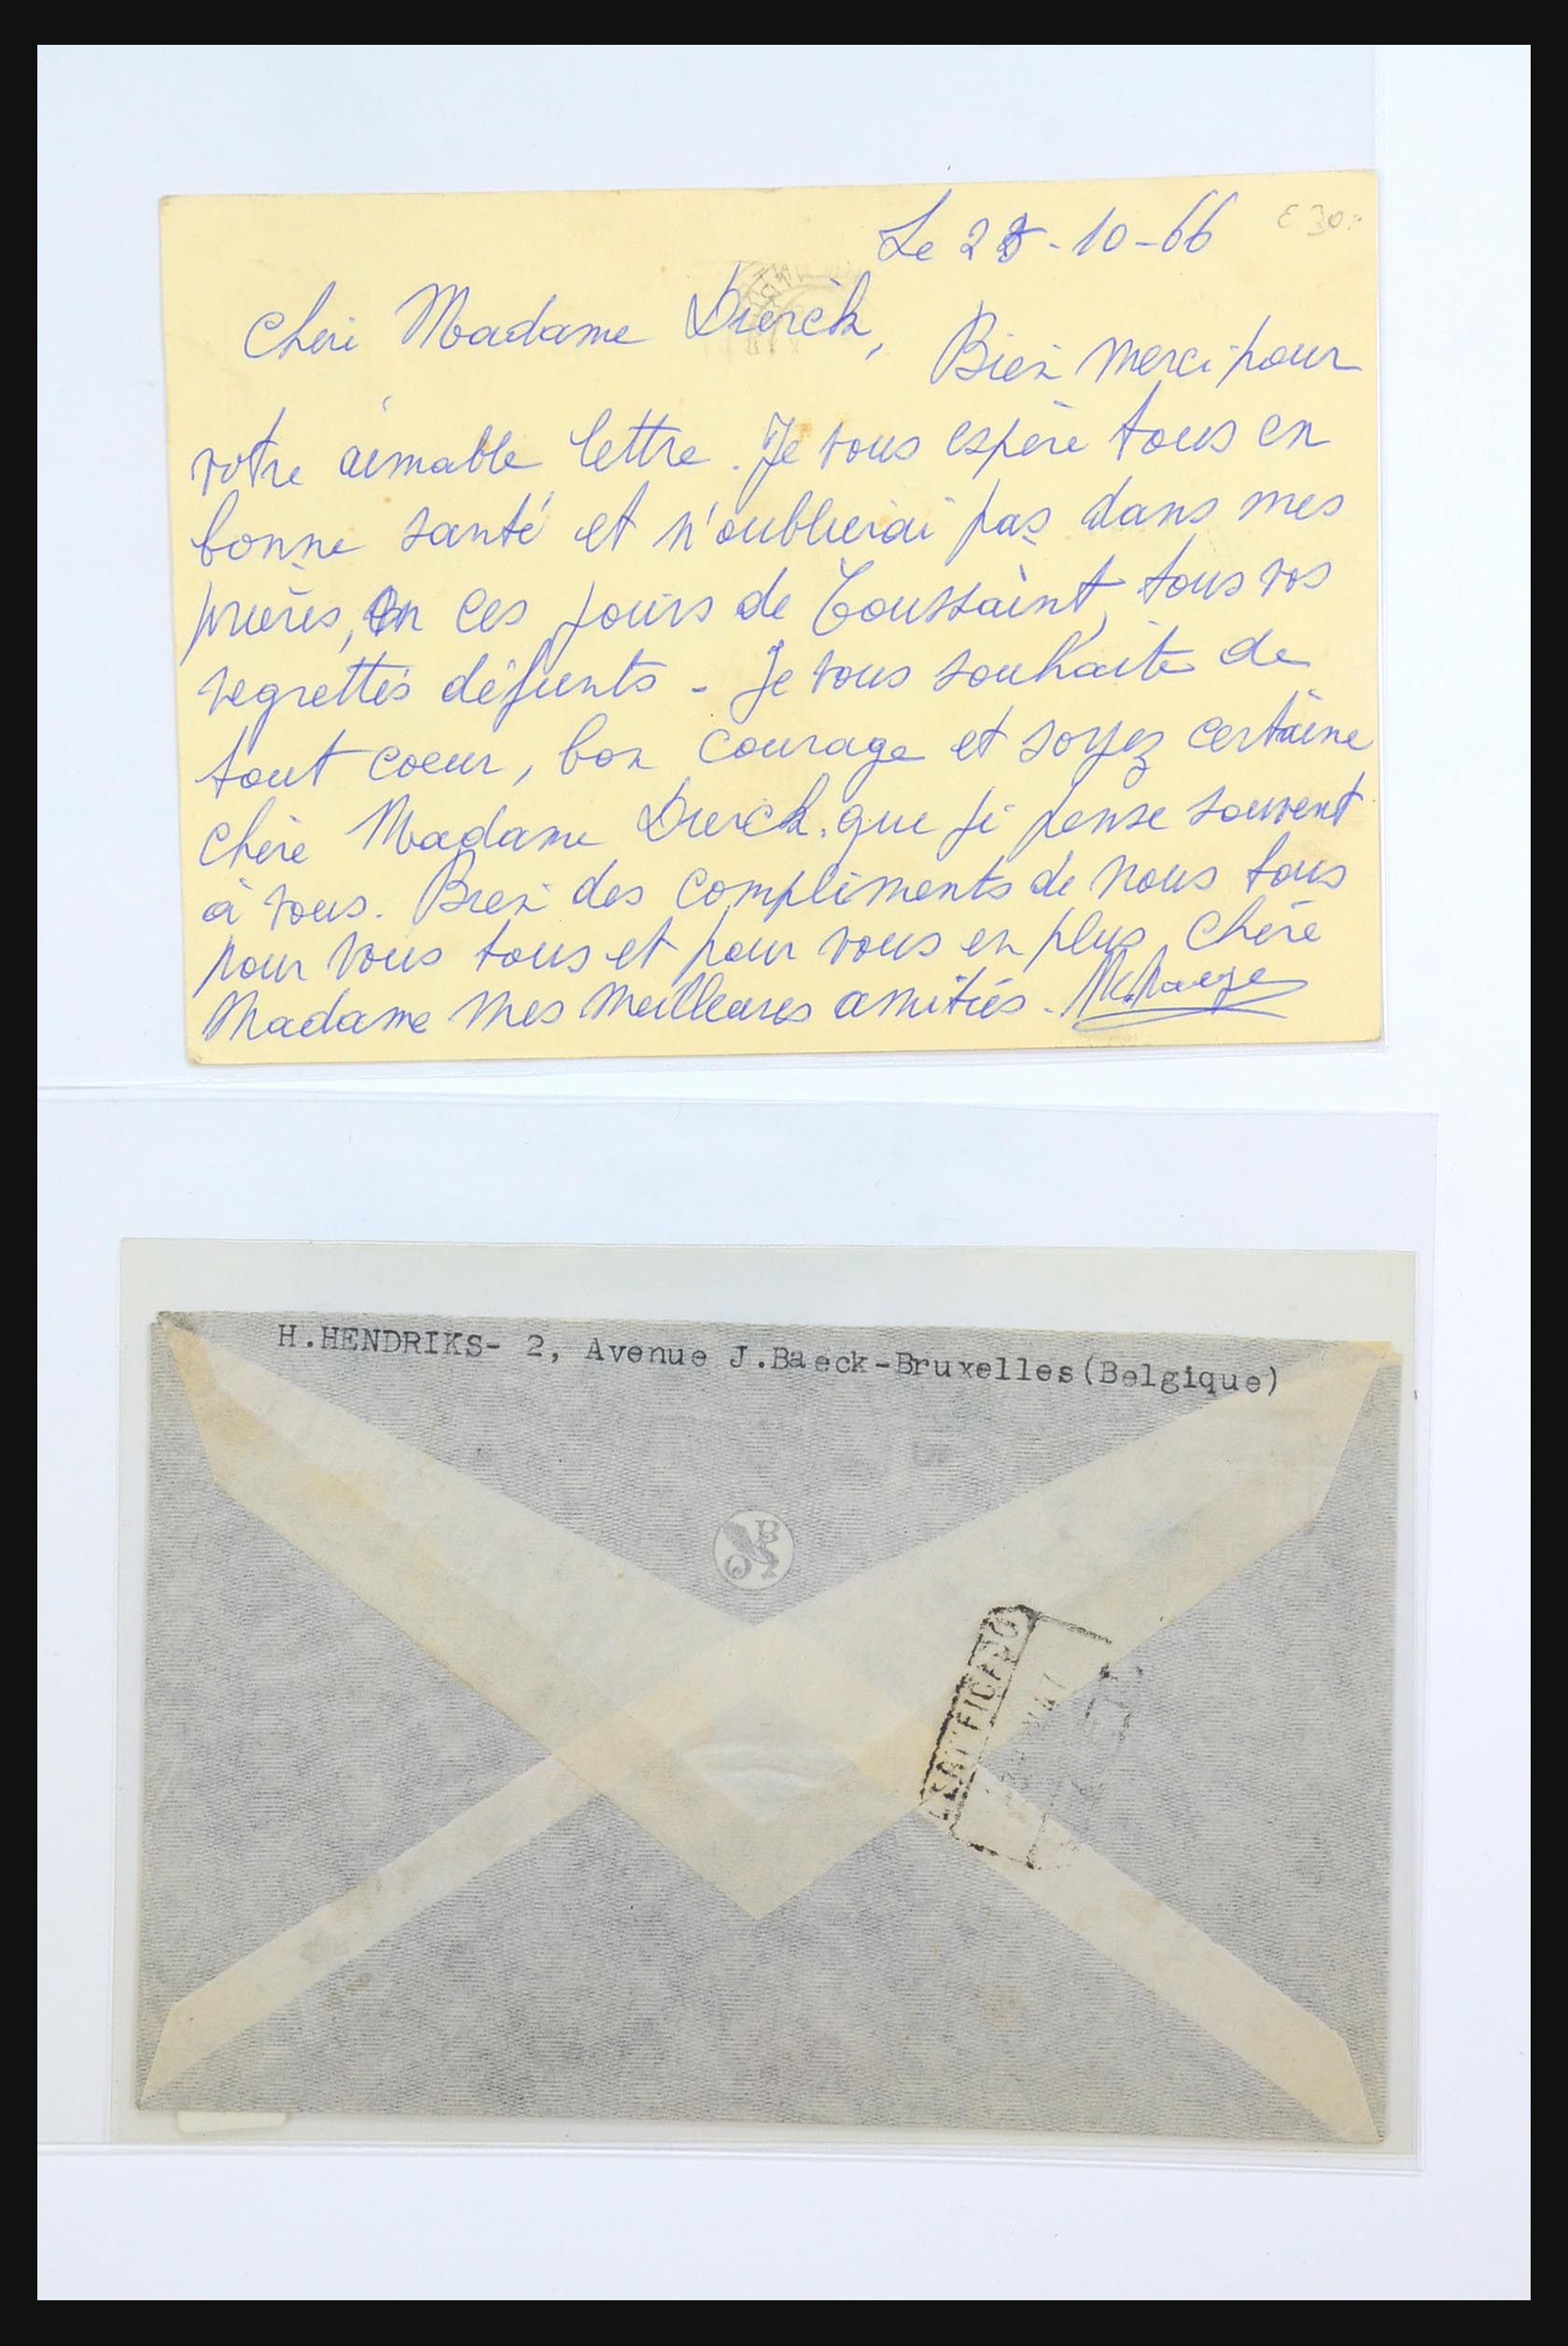 Le 25-10-66
€ 30.-
Chère Madame Dierck,
Bien merci pour
votre aimable lettre. Je vous espère tous en
bonne santé et n'oublierai pas dans mes
prières, en ces jours de Toussaint, tous vos
regrettés défunts - Je vous souhaite de
tout coeur, bon courage et soyez certaine
chère Madame Dierck, que je pense souvent
à vous. Bien des compliments de nous tous
pour vous tous et pour vous en plus, chère
Madame mes meilleures amitiés.
H.HENDRIKS- 2, Avenue J.Baeck-Bruxelles(Belgique)